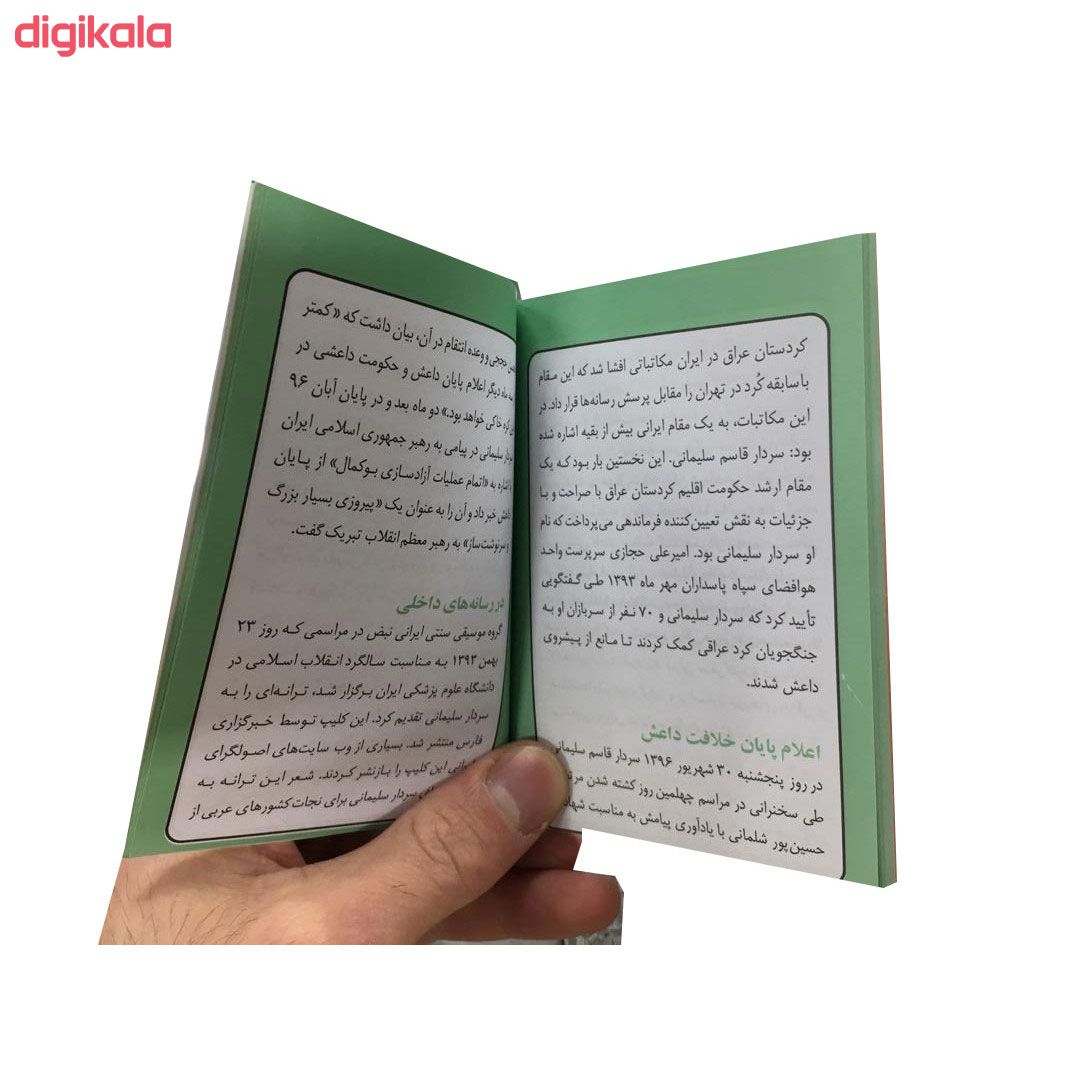 digikala
کردستان عراق در ایران مکاتباتی افشا شد که این مقام
باسابقه کُرد در تهران را مقابل پرسش رسانه‌ها قرار داد. در
این مکاتبات، به یک مقام ایرانی بیش از بقیه اشاره شده
بود: سردار قاسم سلیمانی. این نخستین بار بود که یک
مقام ارشد حکومت اقلیم کردستان عراق با صراحت و با
جزئیات به نقش تعیین‌کننده فرماندهی می‌پرداخت که نام
او سردار سلیمانی بود. امیرعلی حجازی سرپرست واحد
هوافضای سپاه پاسداران مهر ماه ۱۳۹۳ طی گفتگویی
تأیید کرد که سردار سلیمانی و ۷۰ نفر از سربازان او به
جنگجویان کرد عراقی کمک کردند تا مانع از پیشروی
داعش شدند.
اعلام پایان خلافت داعش
در روز پنجشنبه ۳۰ شهریور ۱۳۹۶ سردار قاسم سلیمانی
طی سخنرانی در مراسم چهلمین روز کشته شدن
حسین‌پور شلمانی با یادآوری پیامش به مناسبت
حججی و وعده انتقام در آن، بیان داشت که «کمتر
ماه دیگر اعلام پایان داعش و حکومت داعشی در
کره خاکی خواهد بود.» دو ماه بعد و در پایان آبان ۹۶
سلیمانی در پیامی به رهبر جمهوری اسلامی ایران
به «اتمام عملیات آزادسازی بوکمال» از پایان
داعش خبر داد و آن را به عنوان یک «پیروزی بسیار بزرگ
و سرنوشت‌ساز» به رهبر معظم انقلاب تبریک گفت.
در رسانه‌های داخلی
گروه موسیقی سنتی ایرانی نبض در مراسمی که روز ۲۳
بهمن ۱۳۹۳ به مناسبت سالگرد انقلاب اسلامی در
دانشگاه علوم پزشکی ایران برگزار شد، ترانه‌ای را به
سردار سلیمانی تقدیم کرد. این کلیپ توسط خبرگزاری
فارس منتشر شد. بسیاری از وب سایت‌های اصولگرای
این کلیپ را بازنشر کردند. شعر این ترانه به
سردار سلیمانی برای نجات کشورهای عربی از